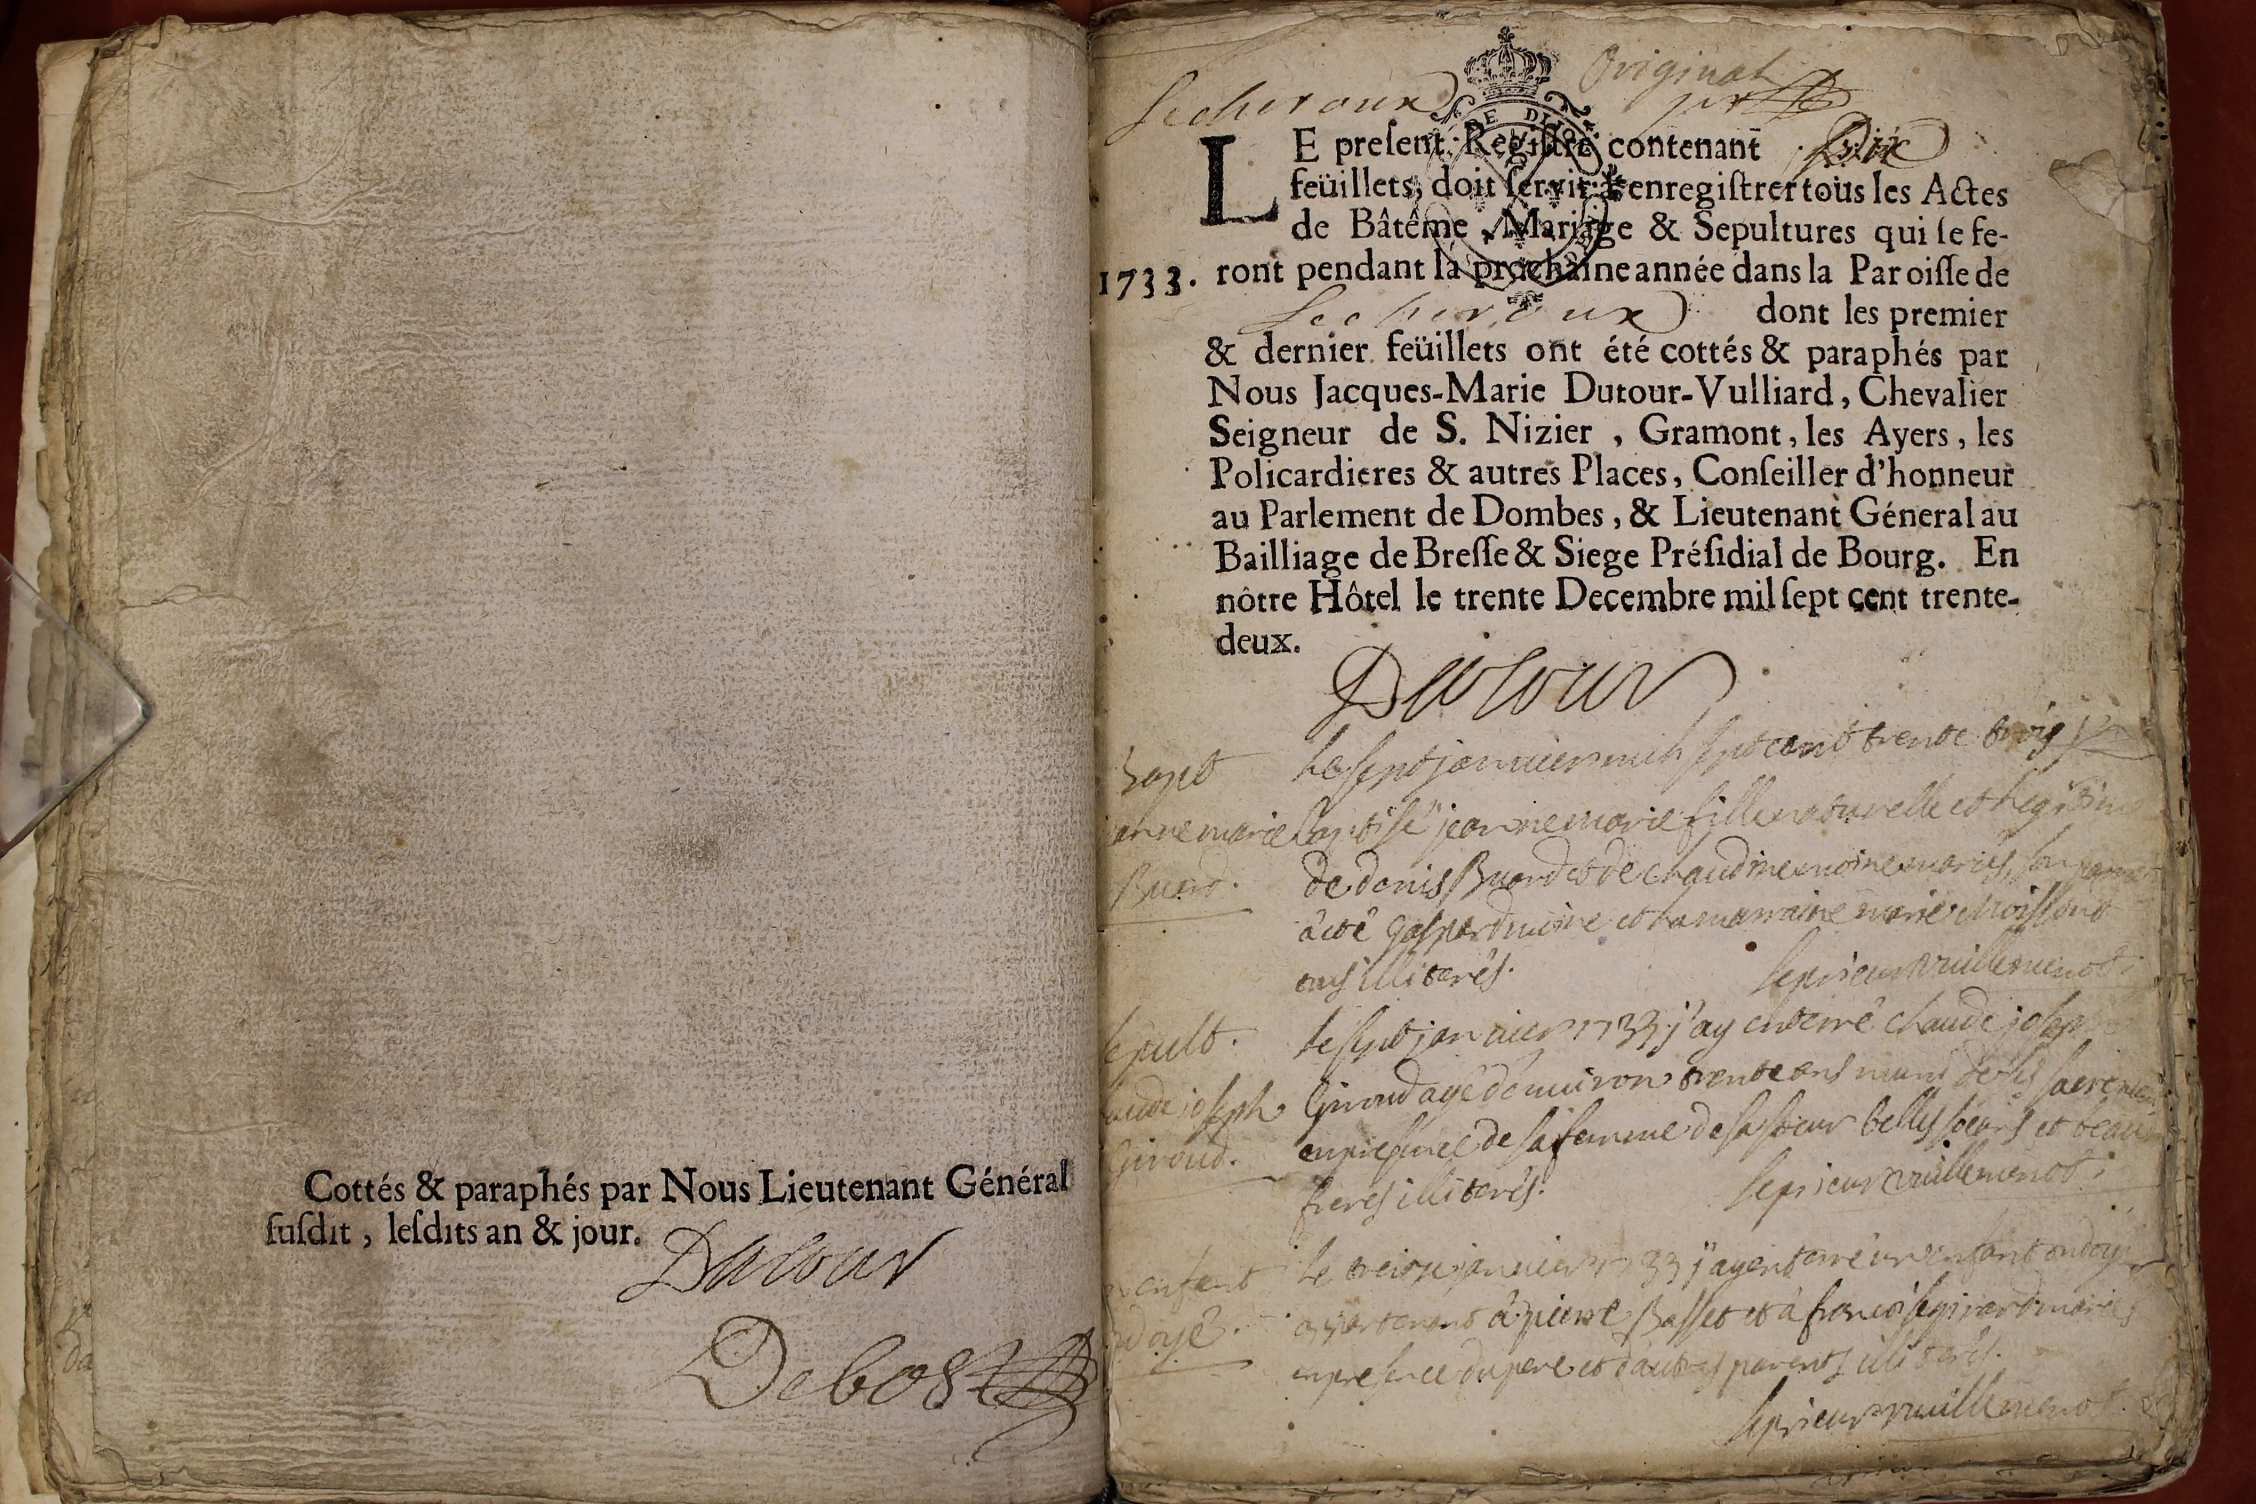 Cottés & paraphés par Nous Lieutenant Général
ſuſdit, leſdits an & jour.
Dutour
Debost
Secheroux
Original
DE DIJON
LE preſent Regiſtre contenant Dix
feüillets, doit ſervir à enregiſtrer tous les Actes
de Bâtême, Mariage & Sepultures qui ſe fe-
1733. ront pendant la prochaine année dans la Paroiſſe de
Secheroux dont les premier
& dernier feüillets ont été cottés & paraphés par
Nous Jacques-Marie Dutour-Vulliard, Chevalier
Seigneur de S. Nizier, Gramont, les Ayers, les
Policardieres & autres Places, Conſeiller d'honneur
au Parlement de Dombes, & Lieutenant Géneral au
Bailliage de Breſſe & Siege Préſidial de Bourg. En
nôtre Hôtel le trente Decembre mil ſept cent trente-
deux.
Dutour
bapt
anne marie
Buord.
le sept janvier mil sept cent trente trois j'ay
baptisé jeanne marie fille naturelle et legitime
de denis Buord et de claudine moine mariés, son parrain
a eté gaspard moine et la marraine marie
tous illiterés.
le prieur vuillemenot.
sepult.
aude joseph
Giroud.
le sept janvier 1733 j'ay enterré claude joseph
Giroud agé d'environ trente ans muni de ses sacremens
en presence de sa femme de sa soeur belles soeurs et beaux
freres illiterés.
le prieur vuillemenot.
n enfant
ndoyé.
le treize janvier 1733 j'ay enterré un enfant ondoyé
appartenant à pierre Basset et à françoise girard mariés
en presence du pere et d'autres parents illiterés.
le prieur vuillemenot.